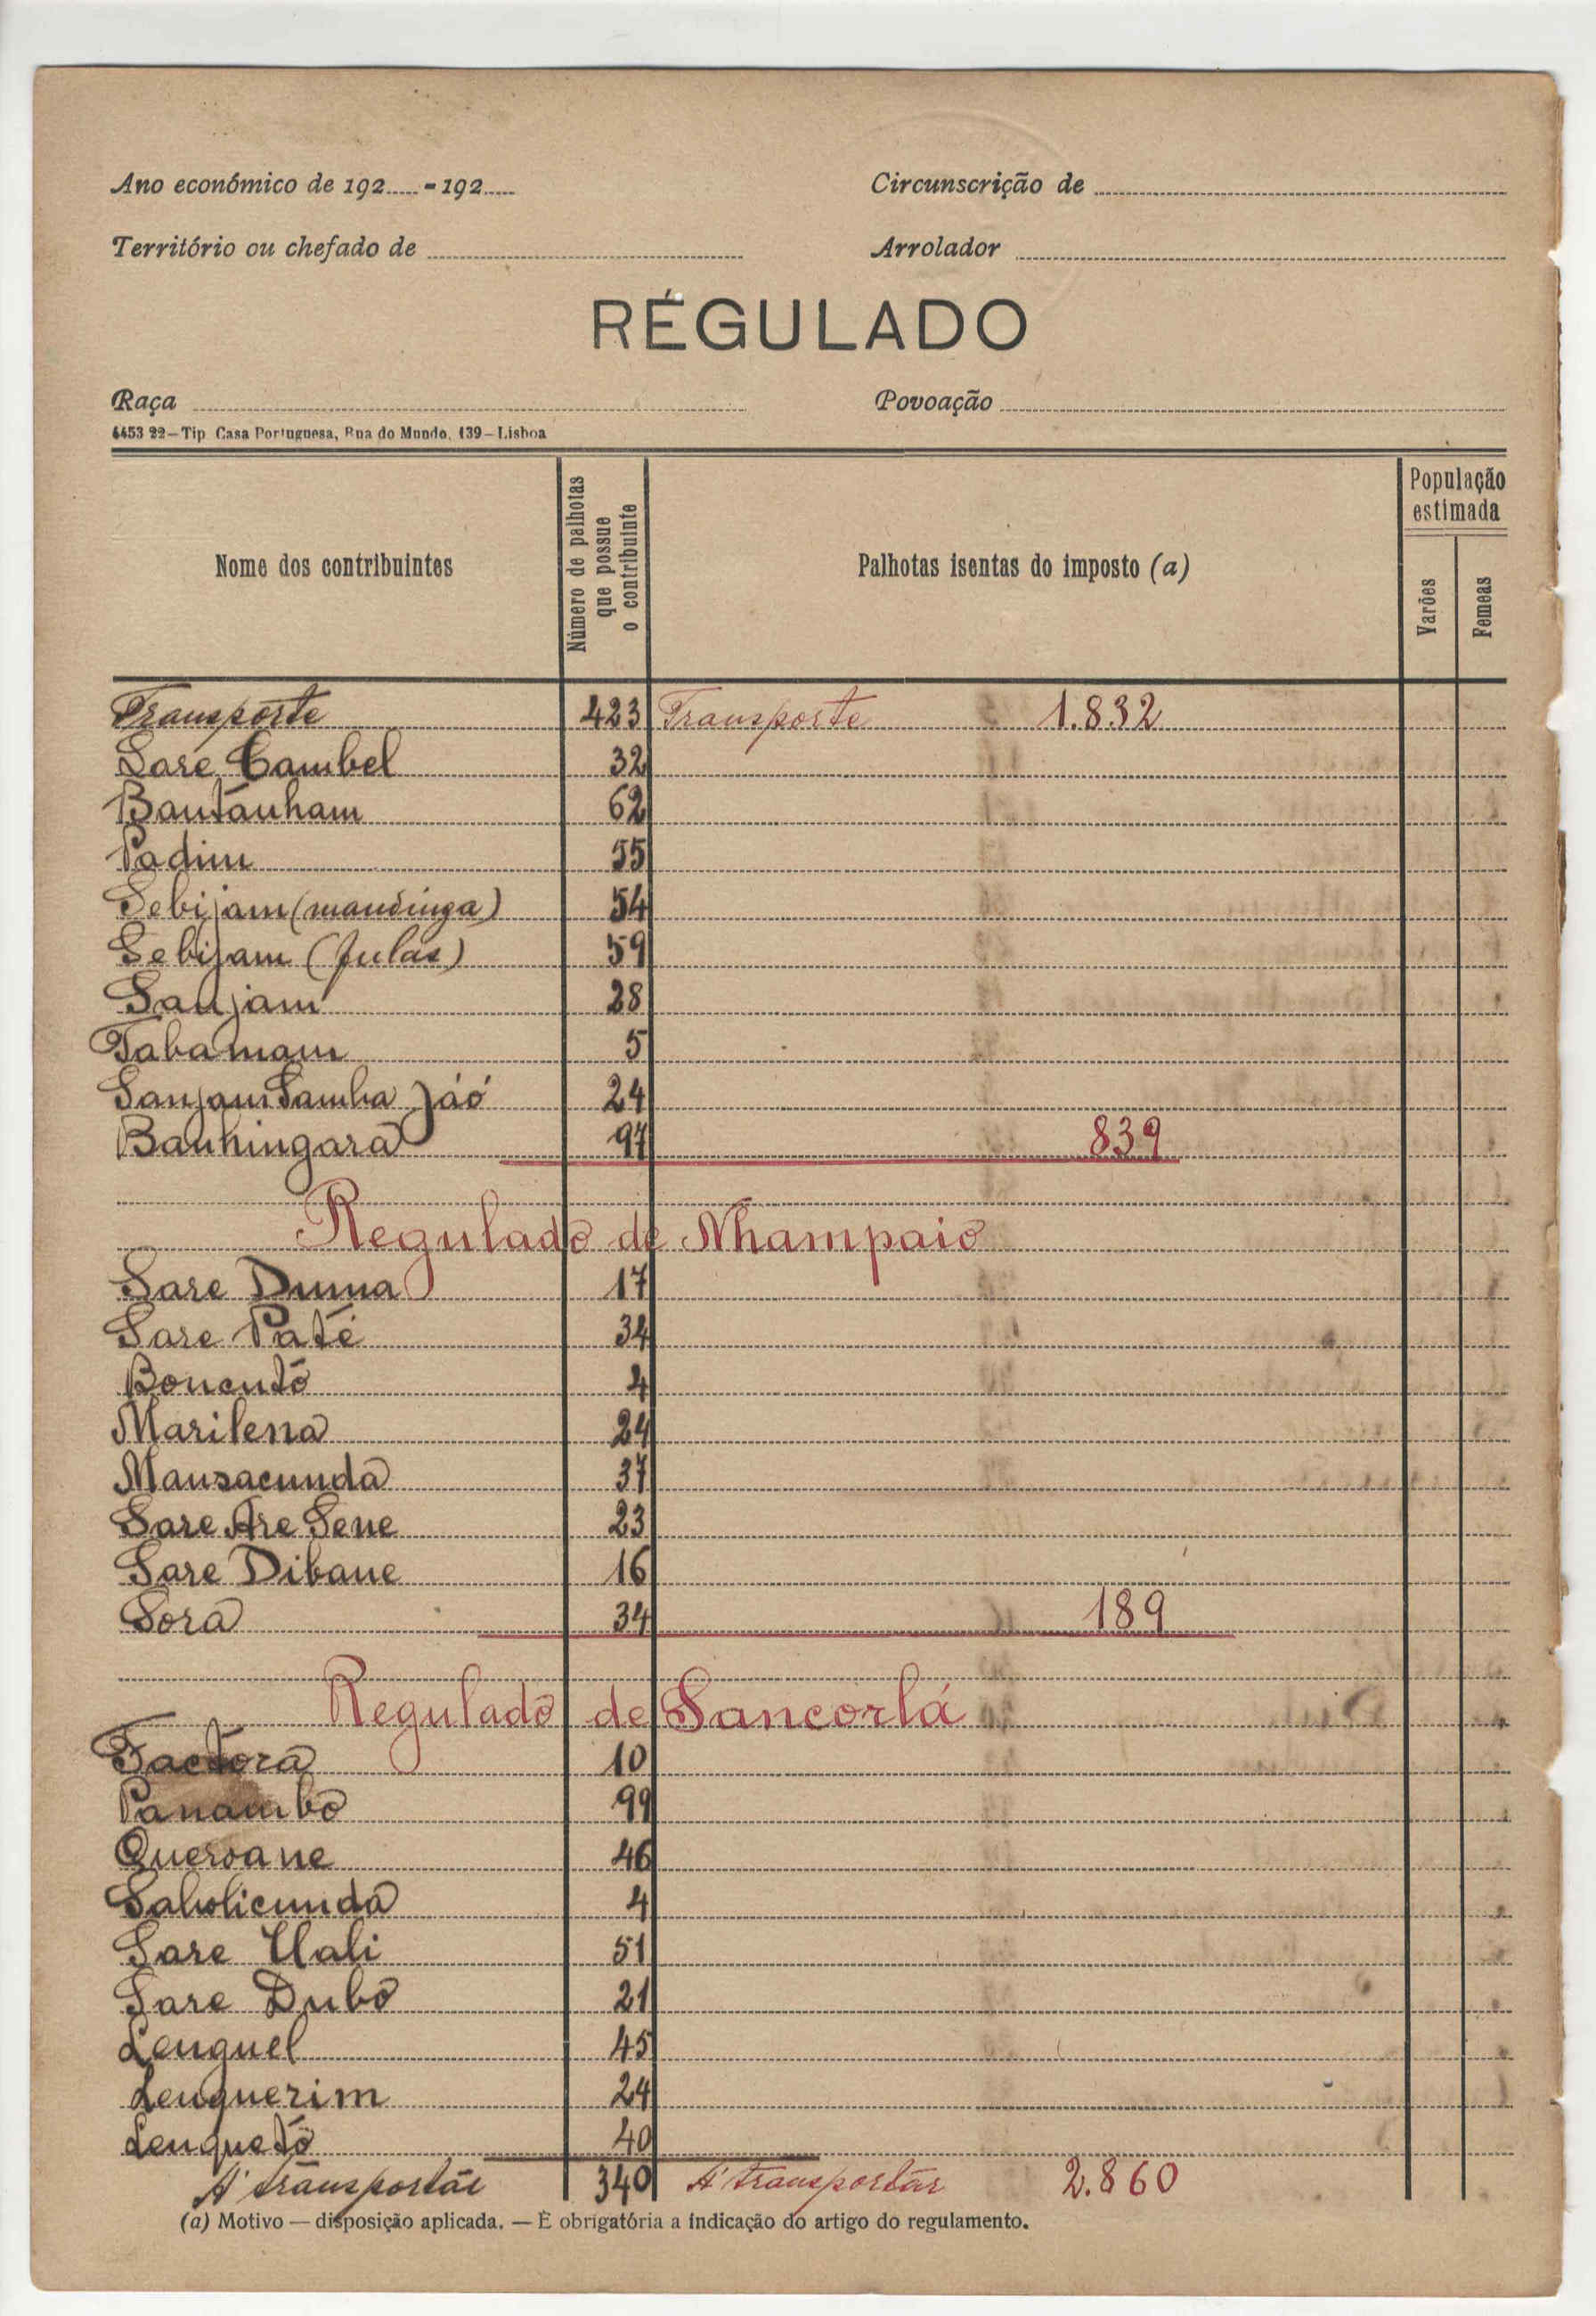 Ano económico de 192..... - 192..... Circunscrição de
Território ou chefado de Arrolador
RÉGULADO
Raça Povoação
4453 22—Tip Casa Portuguesa, Rua do Mundo, 139—Lisboa
Nome dos contribuintes
Número de palhotas que possue o contribuinte
Palhotas isentas do imposto (a)
População estimada
Varões
Femeas
Transporte 423 Transporte 1.832
Sare Cambel 32
Bantanham 62
Padim 55
Sebijam (mandinga) 54
Sebijam (fulas) 59
Sanjam 28
Tabamam 5
Sanjam Samba Jáó 24
Banhingara 97 839
Regulado de Nhampaio
Sare Duma 17
Sare Paté 34
Boncutó 4
Marilena 24
Mansacunda 37
Sare Are Sene 23
Sare Dibane 16
Sora 34 189
Regulado de Sancorlá
Factora 10
Panambo 99
Queroane 46
Sabolicunda 4
Sare Uali 51
Sare Dubo 21
Lenguel 45
Lenguerim 24
Lenguetó 40
A' transportar 340 A' transportar 2.860
(a) Motivo — disposição aplicada. — É obrigatória a indicação do artigo do regulamento.